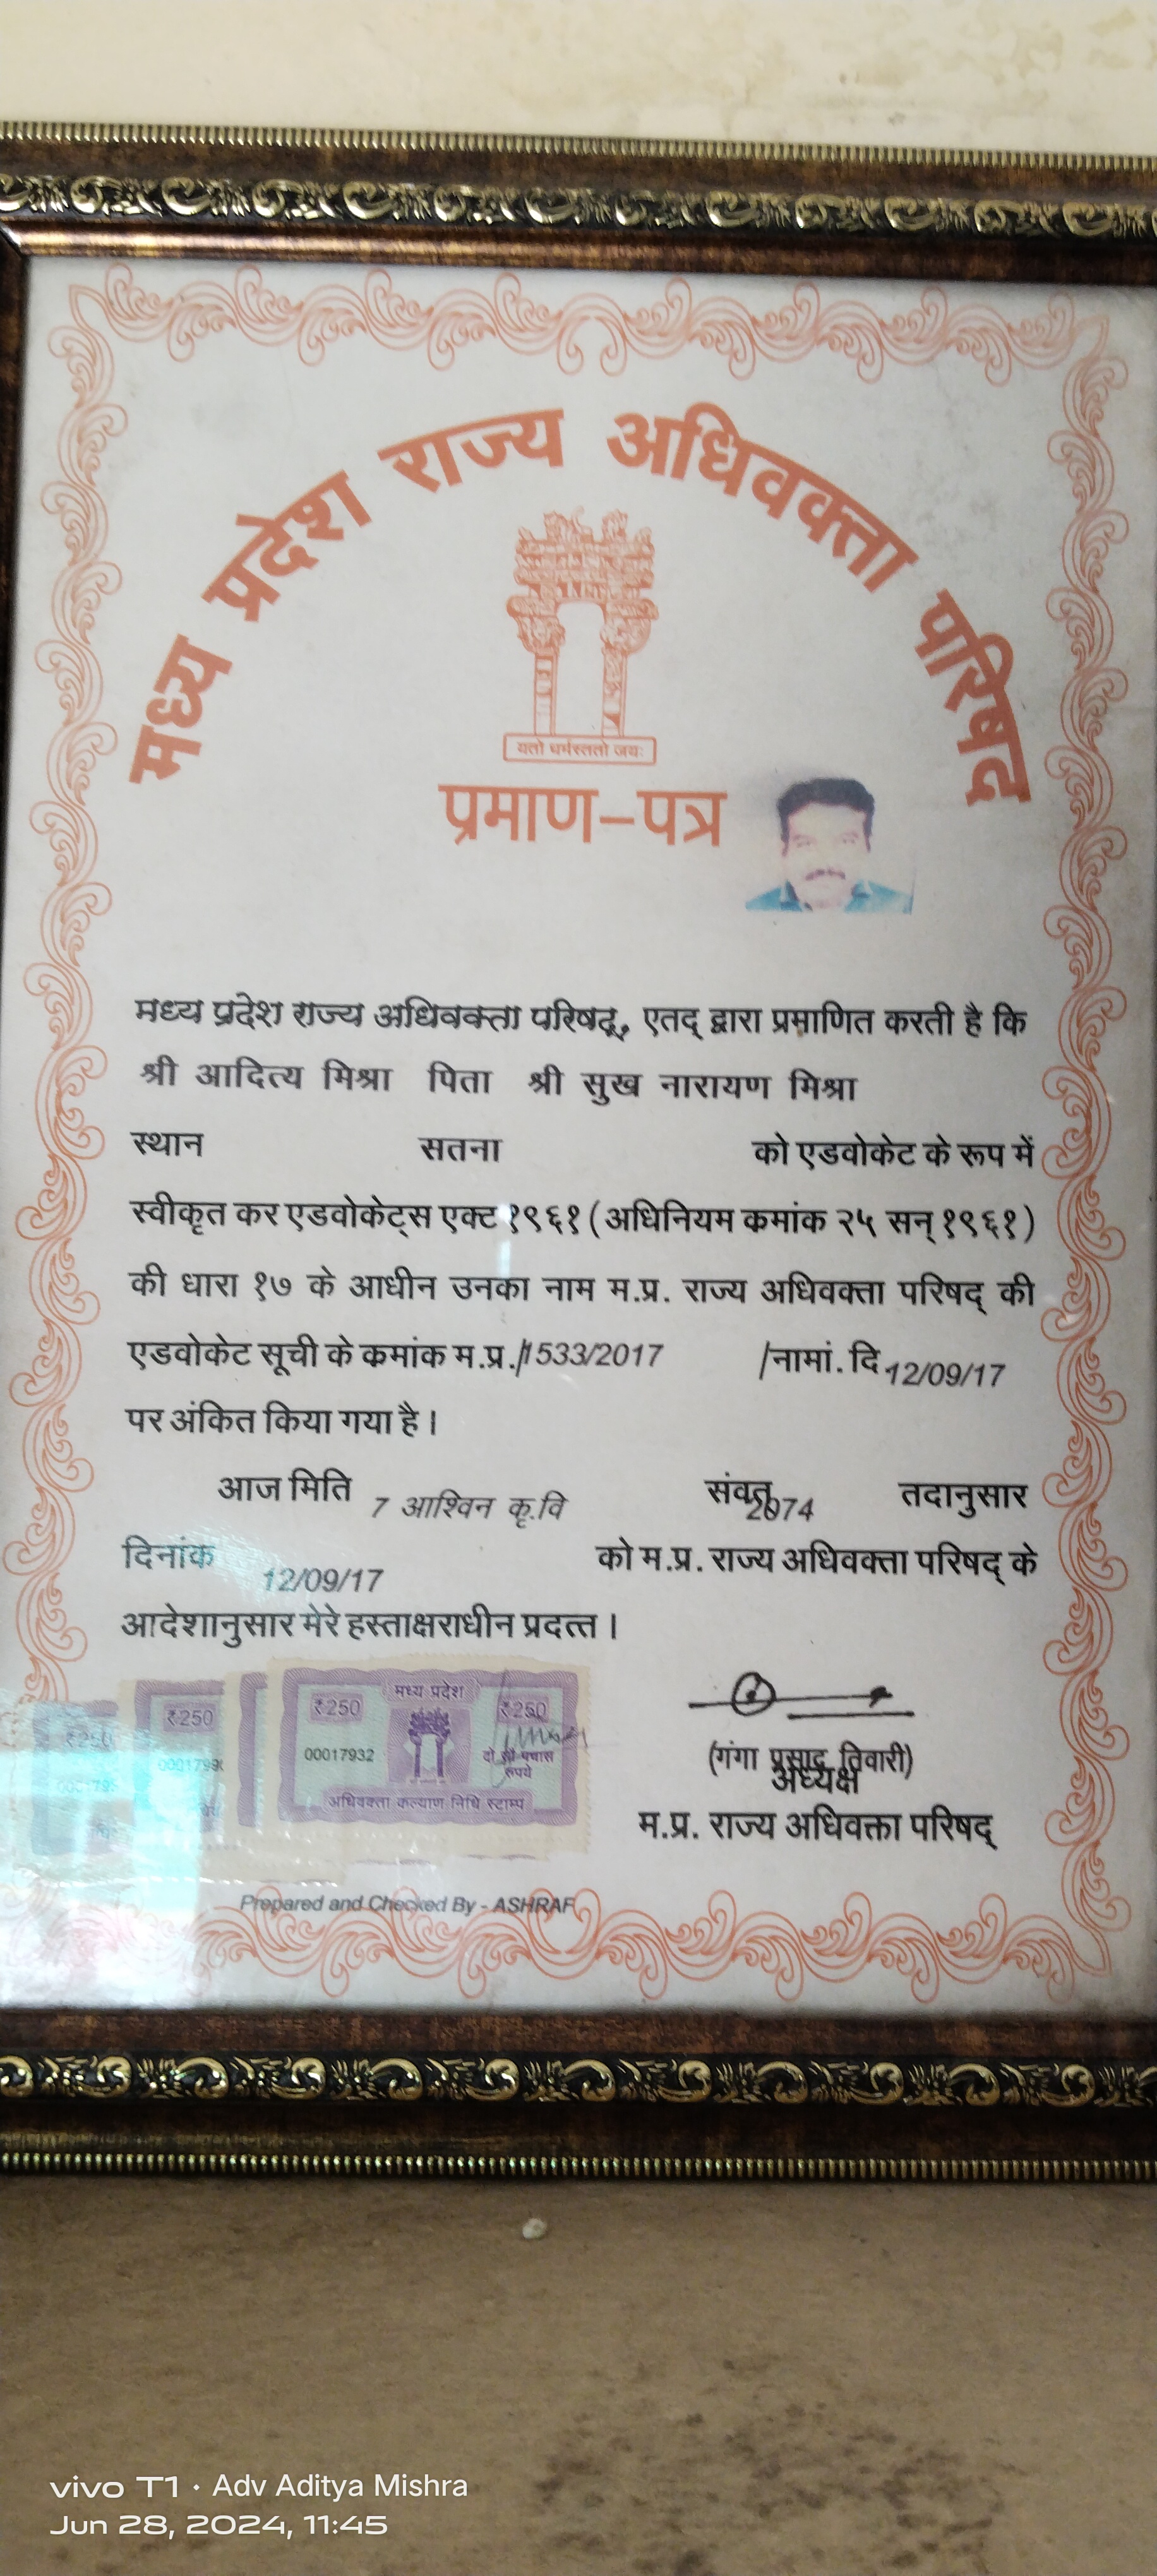 मध्य प्रदेश राज्य अधिवक्ता परिषद
यतो धर्मस्ततो जयः
प्रमाण-पत्र
मध्य प्रदेश राज्य अधिवक्ता परिषद्, एतद् द्वारा प्रमाणित करती है कि
श्री आदित्य मिश्रा पिता श्री सुख नारायण मिश्रा
स्थान सतना को एडवोकेट के रूप में
स्वीकृत कर एडवोकेट्स एक्ट १९६१ (अधिनियम कमांक २५ सन् १९६१)
की धारा १७ के आधीन उनका नाम म.प्र. राज्य अधिवक्ता परिषद् की
एडवोकेट सूची के कमांक म.प्र./1533/2017 /नामां. दि. 12/09/17
पर अंकित किया गया है।
आज मिति 7 आश्विन कृ.वि संवत् 2074 तदानुसार
दिनांक 12/09/17 को म.प्र. राज्य अधिवक्ता परिषद् के
आदेशानुसार मेरे हस्ताक्षराधीन प्रदत्त।
₹250 ₹250 ₹250 मध्य प्रदेश ₹250
00017932 दो सौ पचास रूपये
अधिवक्ता कल्याण निधि स्टाम्प
(गंगा प्रसाद तिवारी)
अध्यक्ष
म.प्र. राज्य अधिवक्ता परिषद्
Prepared and Checked By - ASHRAF
vivo T1 · Adv Aditya Mishra
Jun 28, 2024, 11:45